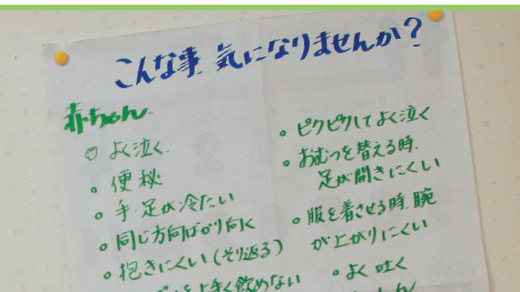 こんな事 気になりませんか?
赤ちゃん
よく泣く
。便秘
。手・足が冷たい
。同じ方向ばかり向く
。抱きにくい(そり返る)
上手く飲めない
。ピクピクしてよく泣く
。おむつを替える時、
足が開きにくい
。服を着させる時、腕
が上がりにくい
。よく吐く